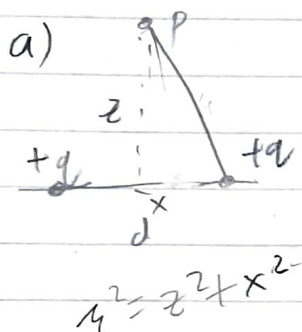 a)
P
z
+q +q
x
d
r² = z² + x²